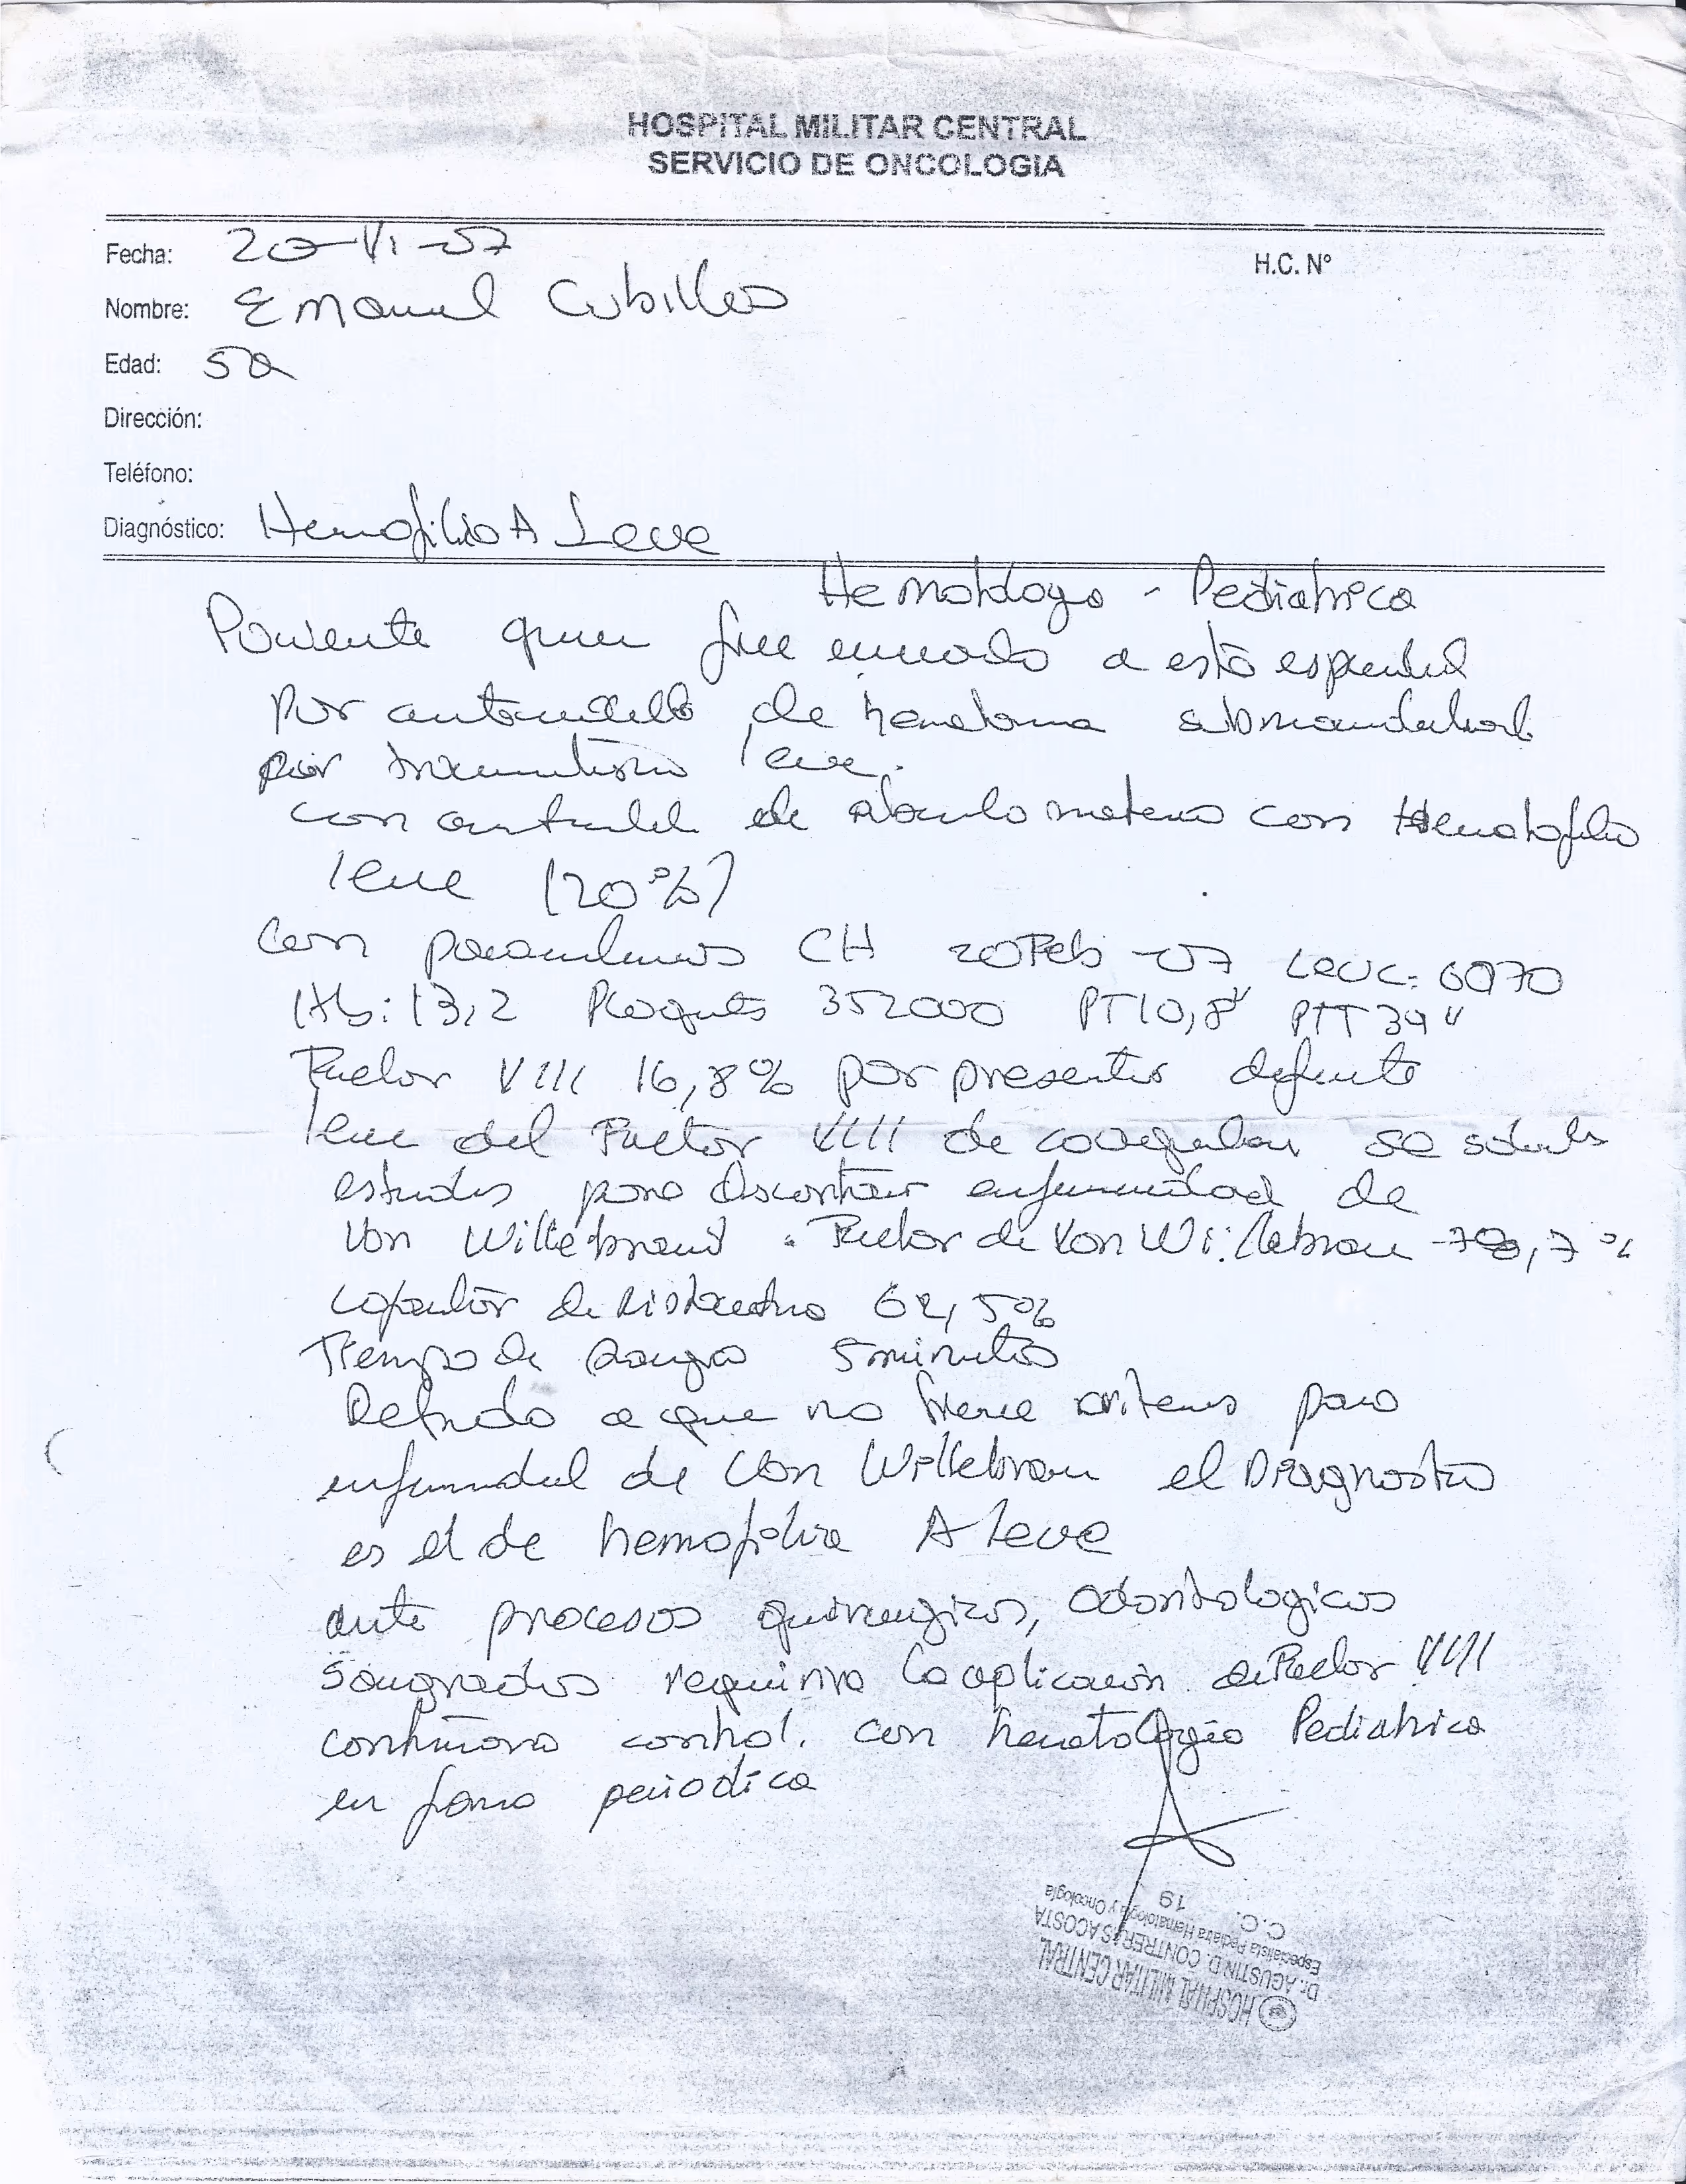 HOSPITAL MILITAR CENTRAL
SERVICIO DE ONCOLOGIA
Fecha: 20-VI-07
H.C. N°
Nombre: Emanuel Cubillos
Edad: 5a
Dirección:
Teléfono:
Diagnóstico: Hemofilia A Leve
Hematologo - Pediatrica
Paciente quien fue enviado a esta especialidad
por antecedente de hematoma submandibular
por traumatismo leve.
con antecedente de abuelo materno con Hematofilia
leve (20%)
Con paraclinicos CH 20 Feb-07 Leuc: 6970
Hb: 13,2 Plaquetas 352000 PT 10,8" PTT 39"
Factor VIII 16,8% por presentar deficiente
leve del Factor VIII de coagulacion se solicita
estudios para descartar enfermedad de
Von Willebrand. Factor de Von Willebran ,7%
cofactor de Ristocetina 62,5%
Tiempo de sangria 5 minutos
Debido a que no tiene criterios para
enfermedad de Von Willebran el Diagnostico
es el de hemofilia A Leve
ante procesos quirurgicos, odontologicos
sangrados requirira la aplicacion de Factor VIII
continuara control. con hematologia Pediatrica
en forma periodica
HOSPITAL MILITAR CENTRAL
Dr. AGUSTIN D. CONTRERAS ACOSTA
Especialista Pediatra Hematología y Oncología
C.C. 19